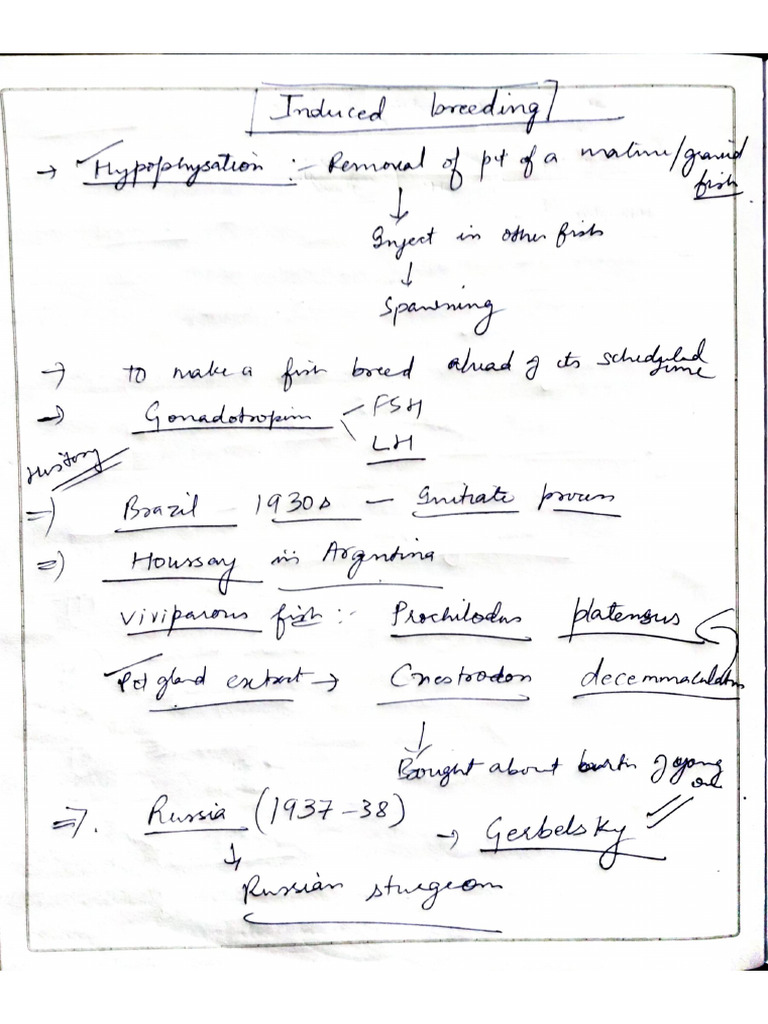 Induced breeding
→ Hypophysation :- Removal of pt of a mature/gravid fish
↓
Inject in other fish
↓
Spawning
→ to make a fish breed ahead of its scheduled time
→ Gonadotropin FSH
LH
History
⇒ Brazil 1930s — Initiate process
⇒ Houssay in Argntina
Viviparous fish :- Prochilodus platensus
Pit gland extract → Cnestrodon decemmaculatus
↓
Bought about burth of yong one
⇒ Russia (1937-38) → Gerbelsky
↓
Russian sturgeon